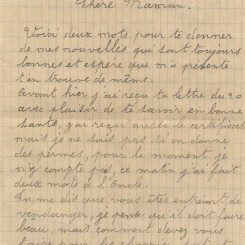 Chère Maman.
Voici deux mots pour te donner
de mes nouvelles qui sont toujours
bonnes et espère que m'a présente
t'en trouve de même.
Avant hier j'ai reçu ta lettre du 20
avec plaisir de te savoir en bonne
santé, j'ai reçu aussi le certificat
mais je ne sais pas si on donne
des permes, pour le moment je
n'y compte pas, ce matin j'ai fait
deux mots à l'oncle.
Tu me dis que vous êtes entraint de
vendanger, je pense qu'il doit faire
beau, mais comment devez vous